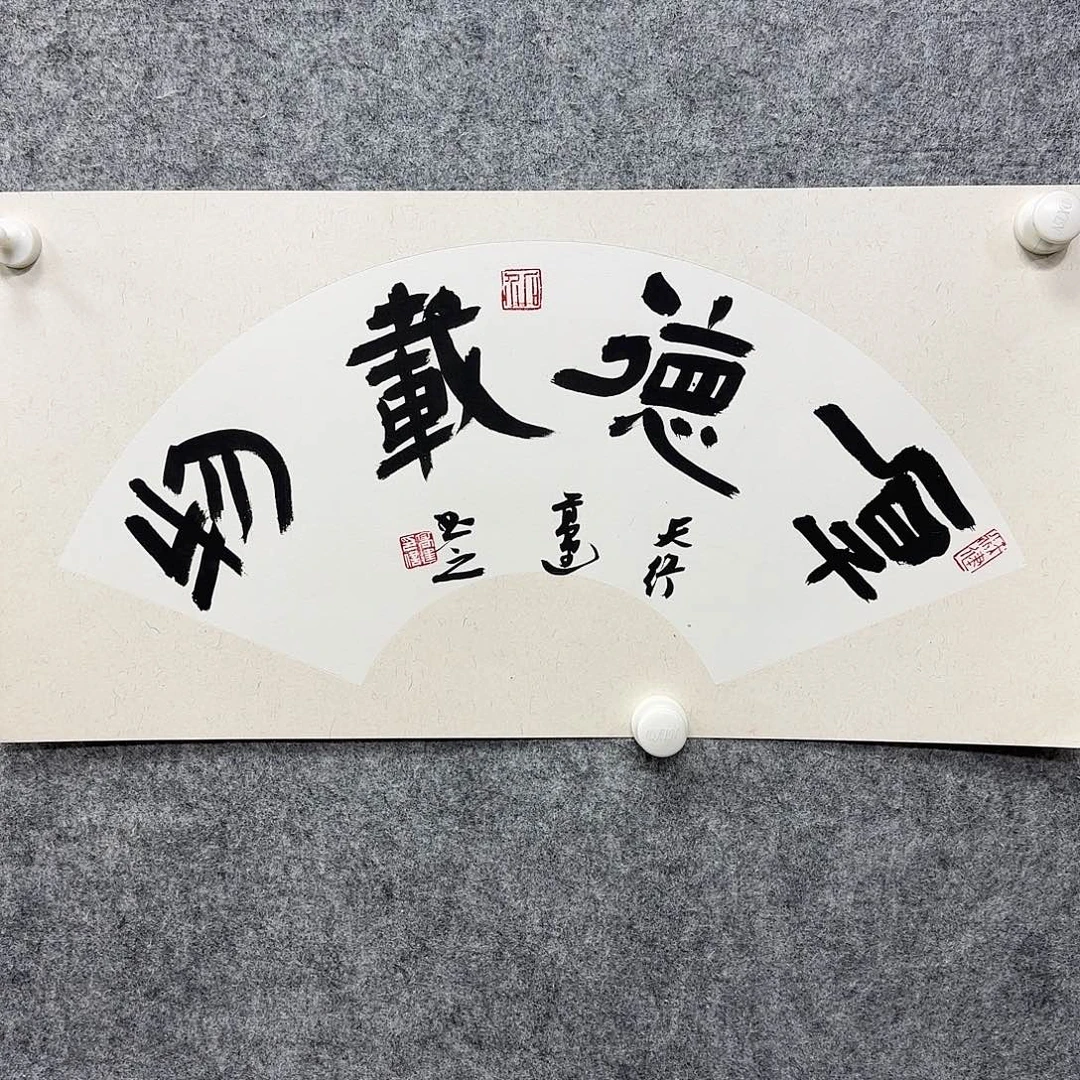 厚德載物
天行
高
书之